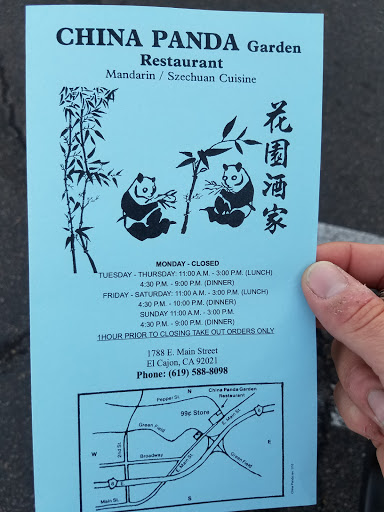 CHINA PANDA Garden
Restaurant
Mandarin / Szechuan Cuisine
花園酒家
MONDAY - CLOSED
TUESDAY - THURSDAY: 11:00 A.M. - 3:00 P.M. (LUNCH)
4:30 P.M. - 9:00 P.M. (DINNER)
FRIDAY - SATURDAY: 11:00 A.M. - 3:00 P.M. (LUNCH)
4:30 P.M. - 10:00 P.M. (DINNER)
SUNDAY 11:00 A.M. - 3:00 P.M.
4:30 P.M. - 9:00 P.M. (DINNER)
1HOUR PRIOR TO CLOSING TAKE OUT ORDERS ONLY
1788 E. Main Street
El Cajon, CA 92021
Phone: (619) 588-8098
China Panda Garden
Restaurant
N
Pepper St.
99¢ Store
E. Main St.
Green Field
W
2nd St.
Broadway
E
E. Main St.
Green Field
Main St.
S